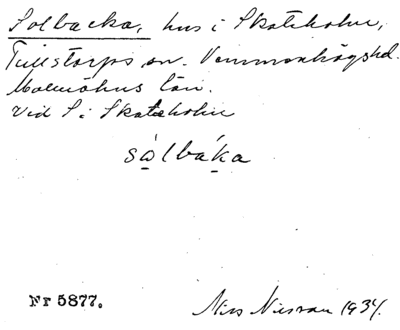 Solbacka, hus i Skateholm,
Tullstorps sn. Vemmenhögs hd.
Malmöhus län.
Vid S i Skateholm
sòlbáka
Nr 5877.
Nils 1934.